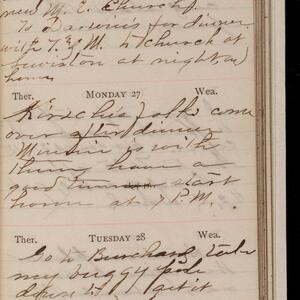 new M. E. Church,
To Darwin's for dinner
with T. & M. to church at
at night,
home
Ther. MONDAY 27 Wea.
folks come
over after dinner
Minnie is with
them have a
good time start
home at 7 P.M.
Ther. TUESDAY 28 Wea.
Go to Burchard take
my buggy
down to get it